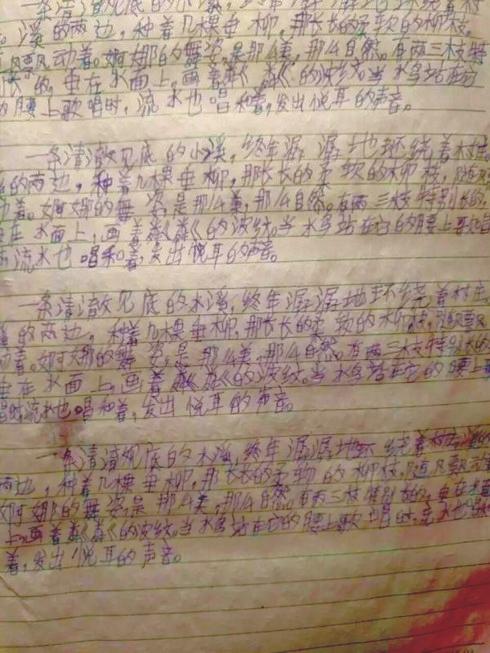 一条清澈见底的小溪,终年潺潺地环绕着村
溪的两边,种着几棵垂柳,那长长的柔软的柳枝,
风飘动着。婀娜的舞姿,是那么美,那么自然。有两三枝特
长的,垂在水面上,画着粼粼的波纹。当水鸟站在它
的腰上歌唱时,流水也唱和着,发出悦耳的声音。
一条清澈见底的小溪,终年潺潺地环绕着村庄。
的两边,种着几棵垂柳,那长长的柔软的柳枝,随风
动着。婀娜的舞姿,是那么美,那么自然。有两三枝特别长的,
在水面上,画着粼粼的波纹。当水鸟站在它的腰上歌唱
流水也唱和着,发出悦耳的声音。
一条清澈见底的水溪,终年潺潺地环绕着村庄。
的两边,种着几棵垂柳,那长长的柔软的柳枝,随风
动着。婀娜的舞姿,是那么美,那么自然。有两三枝特别长的
垂在水面上,画着粼粼的波纹。当水鸟站在它的腰上
唱时,流水也唱和着,发出悦耳的声音。
一条清清见底的水溪,终年潺潺地环绕着村庄。
两边,种着几棵垂柳,那长长的柔软的柳枝,随风飘动
婀娜的舞姿,是那么美,那么自然。有两三枝特别长的,垂在
上,画着粼粼的波纹。当水鸟站在它的腰上歌唱时,流水也唱
着,发出悦耳的声音。